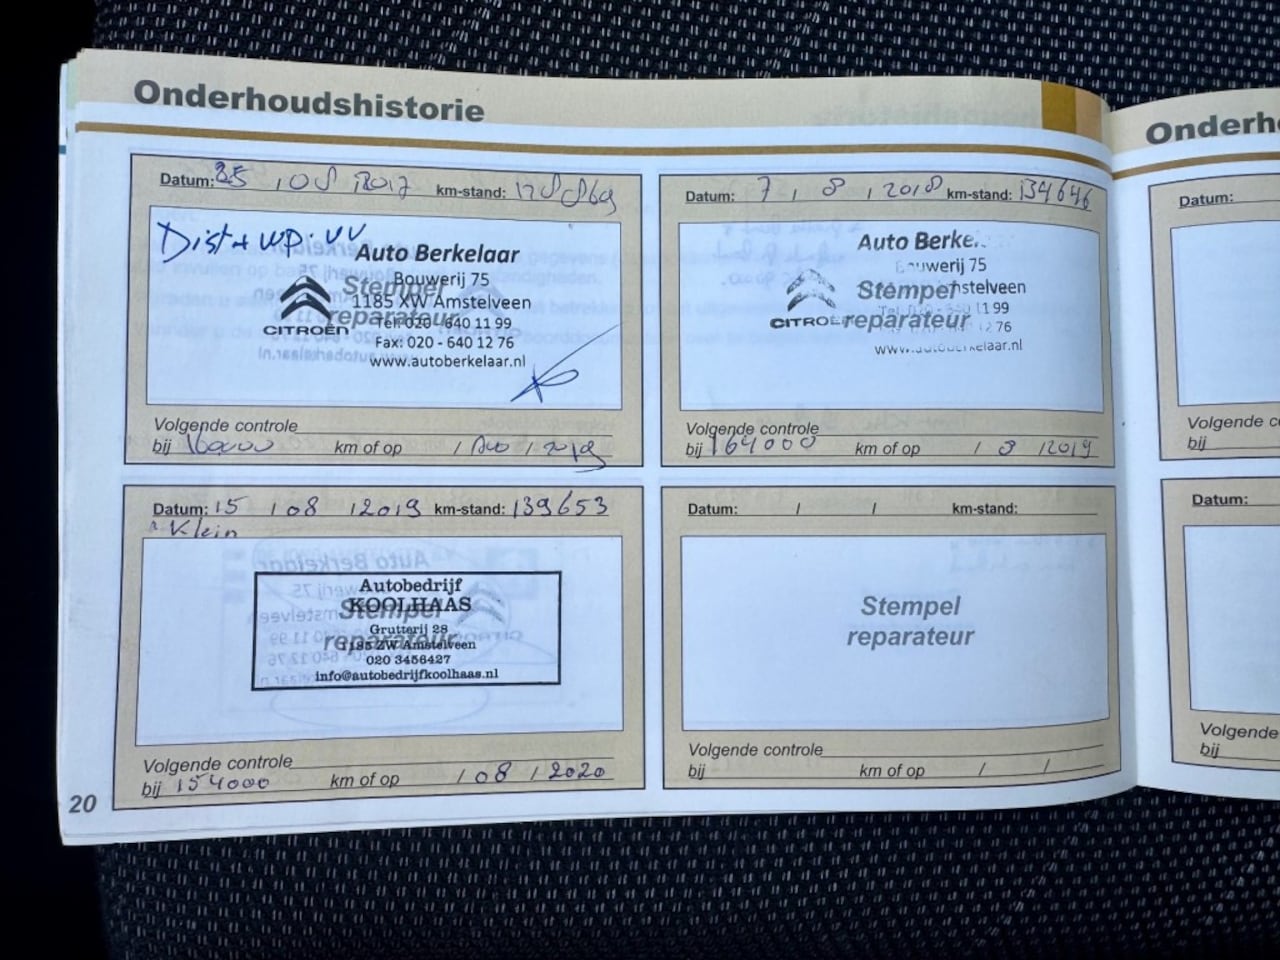 Onderhoudshistorie
Datum: 25 / 08 / 2017 km-stand: 128869
Dist + WP. VV
Auto Berkelaar
Bouwerij 75
Stempel
1185 XW Amstelveen
reparateur
CITROËN
Tel: 020 - 640 11 99
Fax: 020 - 640 12 76
www.autoberkelaar.nl
Volgende controle
bij 160000 km of op / Aug / 2019
Datum: 7 / 8 / 2018 km-stand: 134646
Auto Berke
Bouwerij 75
Stempel
mstelveen
CITROË
reparateur
Tel: 020 - 640 11 99
12 76
www.autoberkelaar.nl
Volgende controle
bij 164000 km of op / 8 / 2019
Datum: 15 / 08 / 2019 km-stand: 139653
Klein
Autobedrijf
KOOLHAAS
Stempel
Grutterij 28
reparateur
1185 ZW Amstelveen
020 3456427
info@autobedrijfkoolhaas.nl
Volgende controle
bij 154000 km of op / 08 / 2020
Datum: / / km-stand:
Stempel
reparateur
Volgende controle
bij km of op / /
20
Onderh
Datum:
Volgende c
bij
Datum:
Volgende
bij